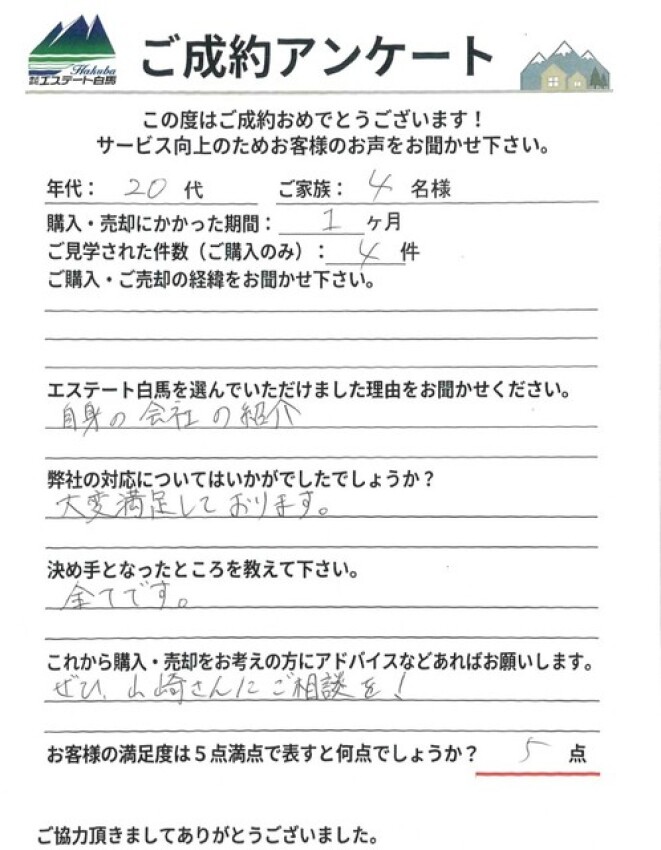 Hakuba
株式会社エステート白馬
ご成約アンケート
この度はご成約おめでとうございます！
サービス向上のためお客様のお声をお聞かせ下さい。
年代： 20 代 ご家族： 4 名様
購入・売却にかかった期間： 1 ヶ月
ご見学された件数（ご購入のみ）： 4 件
ご購入・ご売却の経緯をお聞かせ下さい。
エステート白馬を選んでいただけました理由をお聞かせください。
自身の会社の紹介
弊社の対応についてはいかがでしたでしょうか？
大変満足しております。
決め手となったところを教えて下さい。
全てです。
これから購入・売却をお考えの方にアドバイスなどあればお願いします。
ぜひ、山崎さんにご相談を！
お客様の満足度は５点満点で表すと何点でしょうか？ 5 点
ご協力頂きましてありがとうございました。